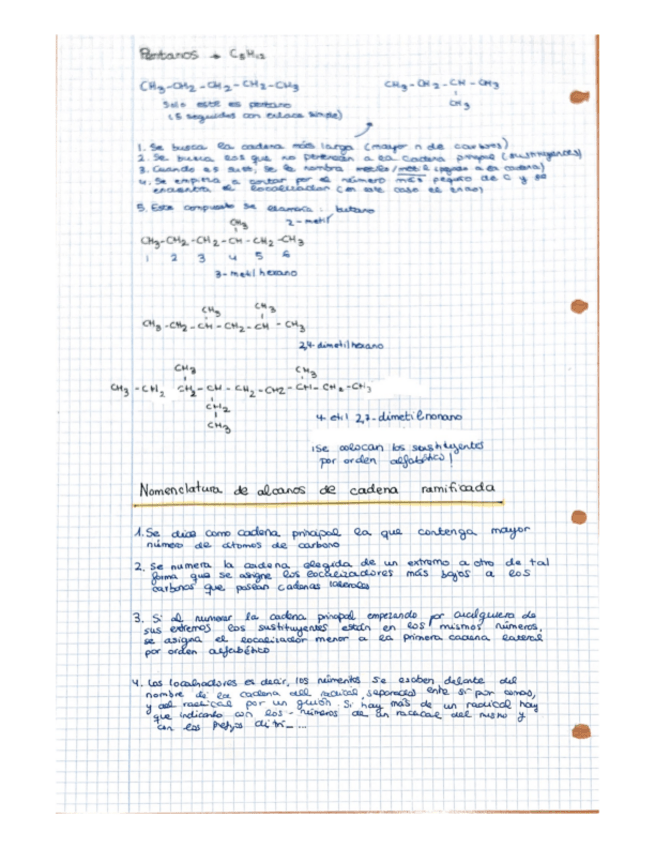 Pentanos → C5H12
CH3-CH2-CH2-CH2-CH3 CH3-CH2-CH-CH3
CH3
Solo este es pentano
(5 seguidos con enlace simple)
1. Se busca la cadena más larga (mayor n de carbonos)
2. Se busca los que no pertenezcan a la cadena principal (sustituyentes)
3. Cuando es sust, se le nombra metilo/metil (pegado a la cadena)
4. Se empieza a contar por el número más pequeño de C y se
encuentra el localizador (en este caso el
5. Este compuesto se llamará: butano
2-metil
CH3
CH3-CH2-CH2-CH-CH2-CH3
1 2 3 4 5 6
3-metil hexano
CH3 CH3
CH3-CH2-CH-CH2-CH-CH3
2,4-dimetilhexano
CH3 CH3
CH3-CH2 CH2-CH-CH2-CH2-CH-CH2-CH3
CH2
CH3
4-etil 2,7-dimetilnonano
¡Se colocan los sustituyentes
por orden alfabético!
Nomenclatura de alcanos de cadena ramificada
1. Se elige como cadena principal la que contenga mayor
número de átomos de carbono
2. Se numera la cadena elegida de un extremo a otro de tal
forma que se asigne los localizadores más bajos a los
carbonos que posean cadenas laterales
3. Si al numerar la cadena principal empezando por cualquiera de
sus extremos los sustituyentes están en los mismos números,
se asigna el localizador menor a la primera cadena lateral
por orden alfabético
4. Los localizadores es decir, los números se escriben delante del
nombre de la cadena del radical, separados entre sí por comas,
y del radical por un guión. Si hay más de un radical hay
que indicarlo con los números de un radical del mismo y
con los prefijos di tri-...